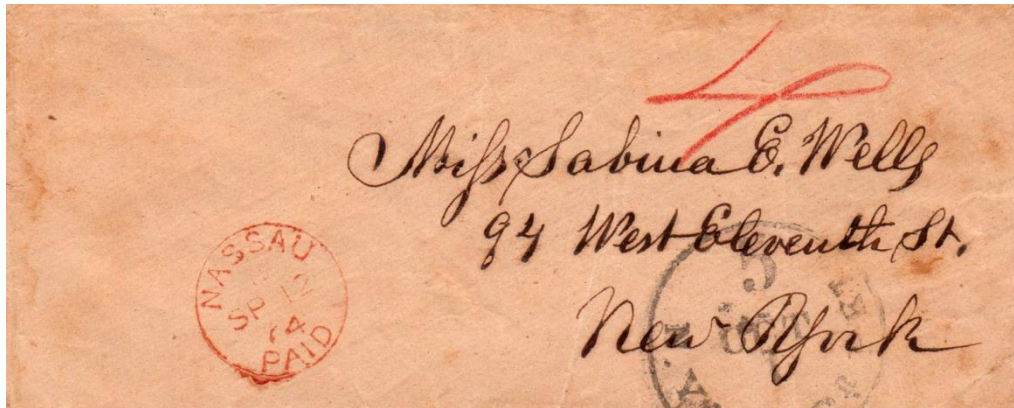 4
Miss Sabina E. Wells
94 West Eleventh St.
New York
NASSAU
SP 12
64
PAID
5
OCT